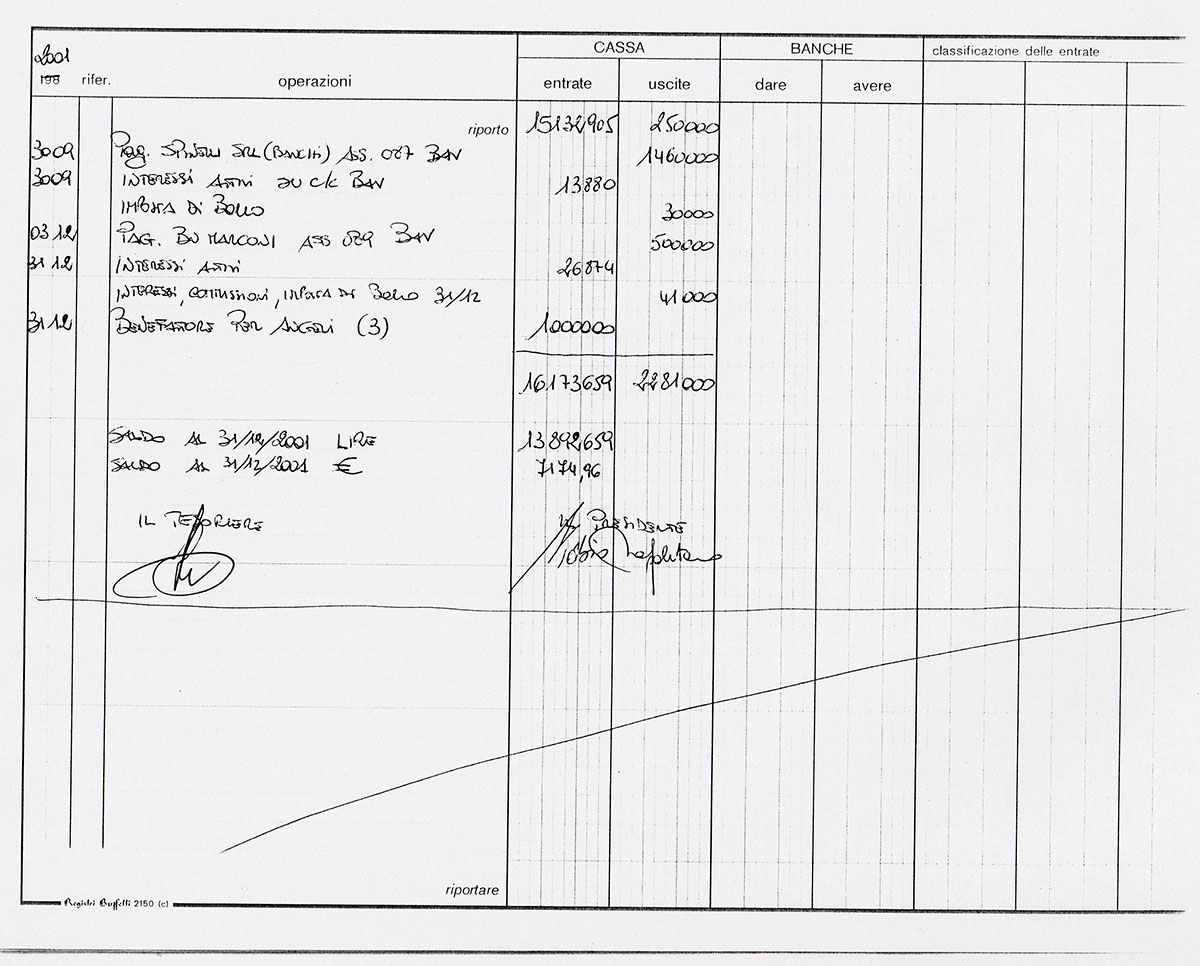 2001 CASSA BANCHE classificazione delle entrate
198 rifer. operazioni entrate uscite dare avere
riporto 15132905 250000
3009 Pag. SPINELLI SRL (BANCHI) ASS. 087 BAV 1460000
3009 INTERESSI ATTIVI SU C/C BAV 13880
IMPOSTA DI BOLLO 30000
03 12 PAG. BU MARCONI ASS 089 BAV 500000
31 12 INTERESSI ATTIVI 26874
INTERESSI, COMMISSIONI, IMPOSTA DI BOLLO 31/12 41000
31 12 BENEFATTORE PER ANGELI (3) 1000000
16173659 2281000
SALDO AL 31/12/2001 LIRE 13892659
SALDO AL 31/12/2001 € 7174,96
IL TESORIERE IL PRESIDENTE
riportare
Registri Buffetti 2150 (c)